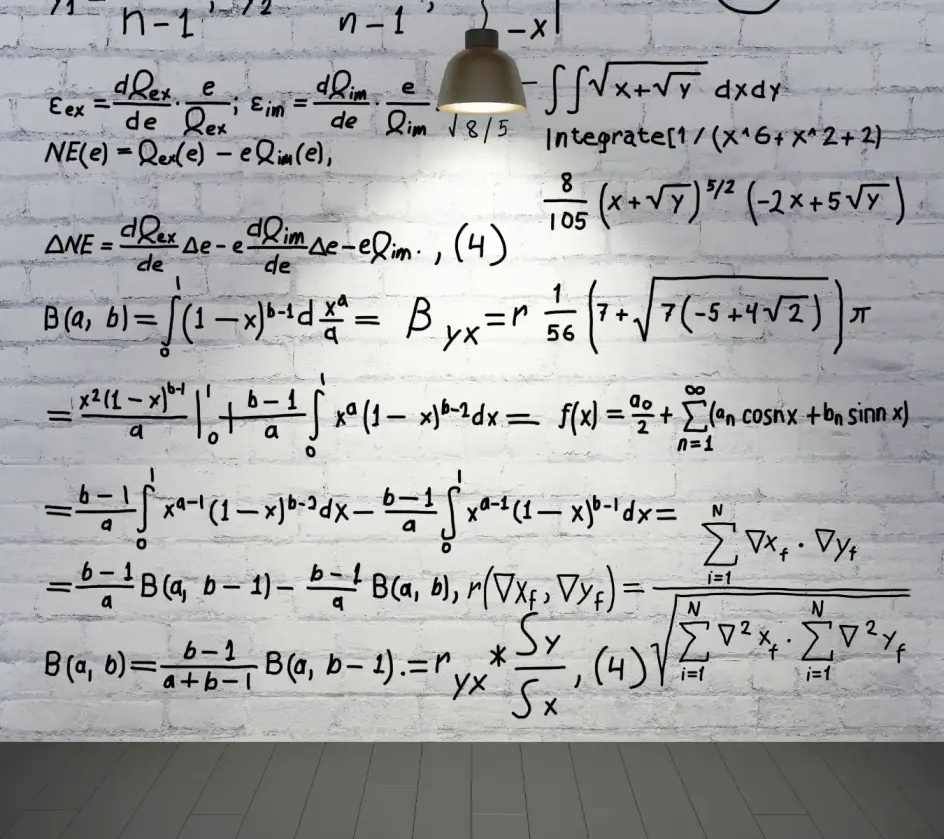 n-1 n-1 , -x|
εex = dQex/de · e/Qex ; εim = dQim/de · e/Qim √8/5
∫∫√x+√y dxdy
NE(e) = Qex(e) - eQim(e),
Integrate[1/(x^6+x^2+2)
8/105 (x+√y)^5/2 (-2x+5√y)
ΔNE = dQex/de Δe - e dQim/de Δe - eQim. , (4)
B(a, b) = ∫₀¹ (1-x)^b-1 d x^a/a = β yx = r 1/56 (7+√7(-5+4√2)) π
= x²(1-x)^b-1/a |₀¹ + b-1/a ∫₀¹ x^a (1-x)^b-2 dx = f(x) = a₀/2 + ∑_n=1^∞ (aₙ cosnx + bₙ sinnx)
= b-1/a ∫₀¹ x^a-1 (1-x)^b-2 dx - b-1/a ∫₀¹ x^a-1 (1-x)^b-1 dx =
= b-1/a B(a, b-1) - b-1/a B(a, b), r(∇xf, ∇yf) = ∑_i=1^N ∇xf · ∇yf / √∑_i=1^N ∇²xf · ∑_i=1^N ∇²yf
B(a, b) = b-1/a+b-1 B(a, b-1). = r yx * Sy/Sx , (4)